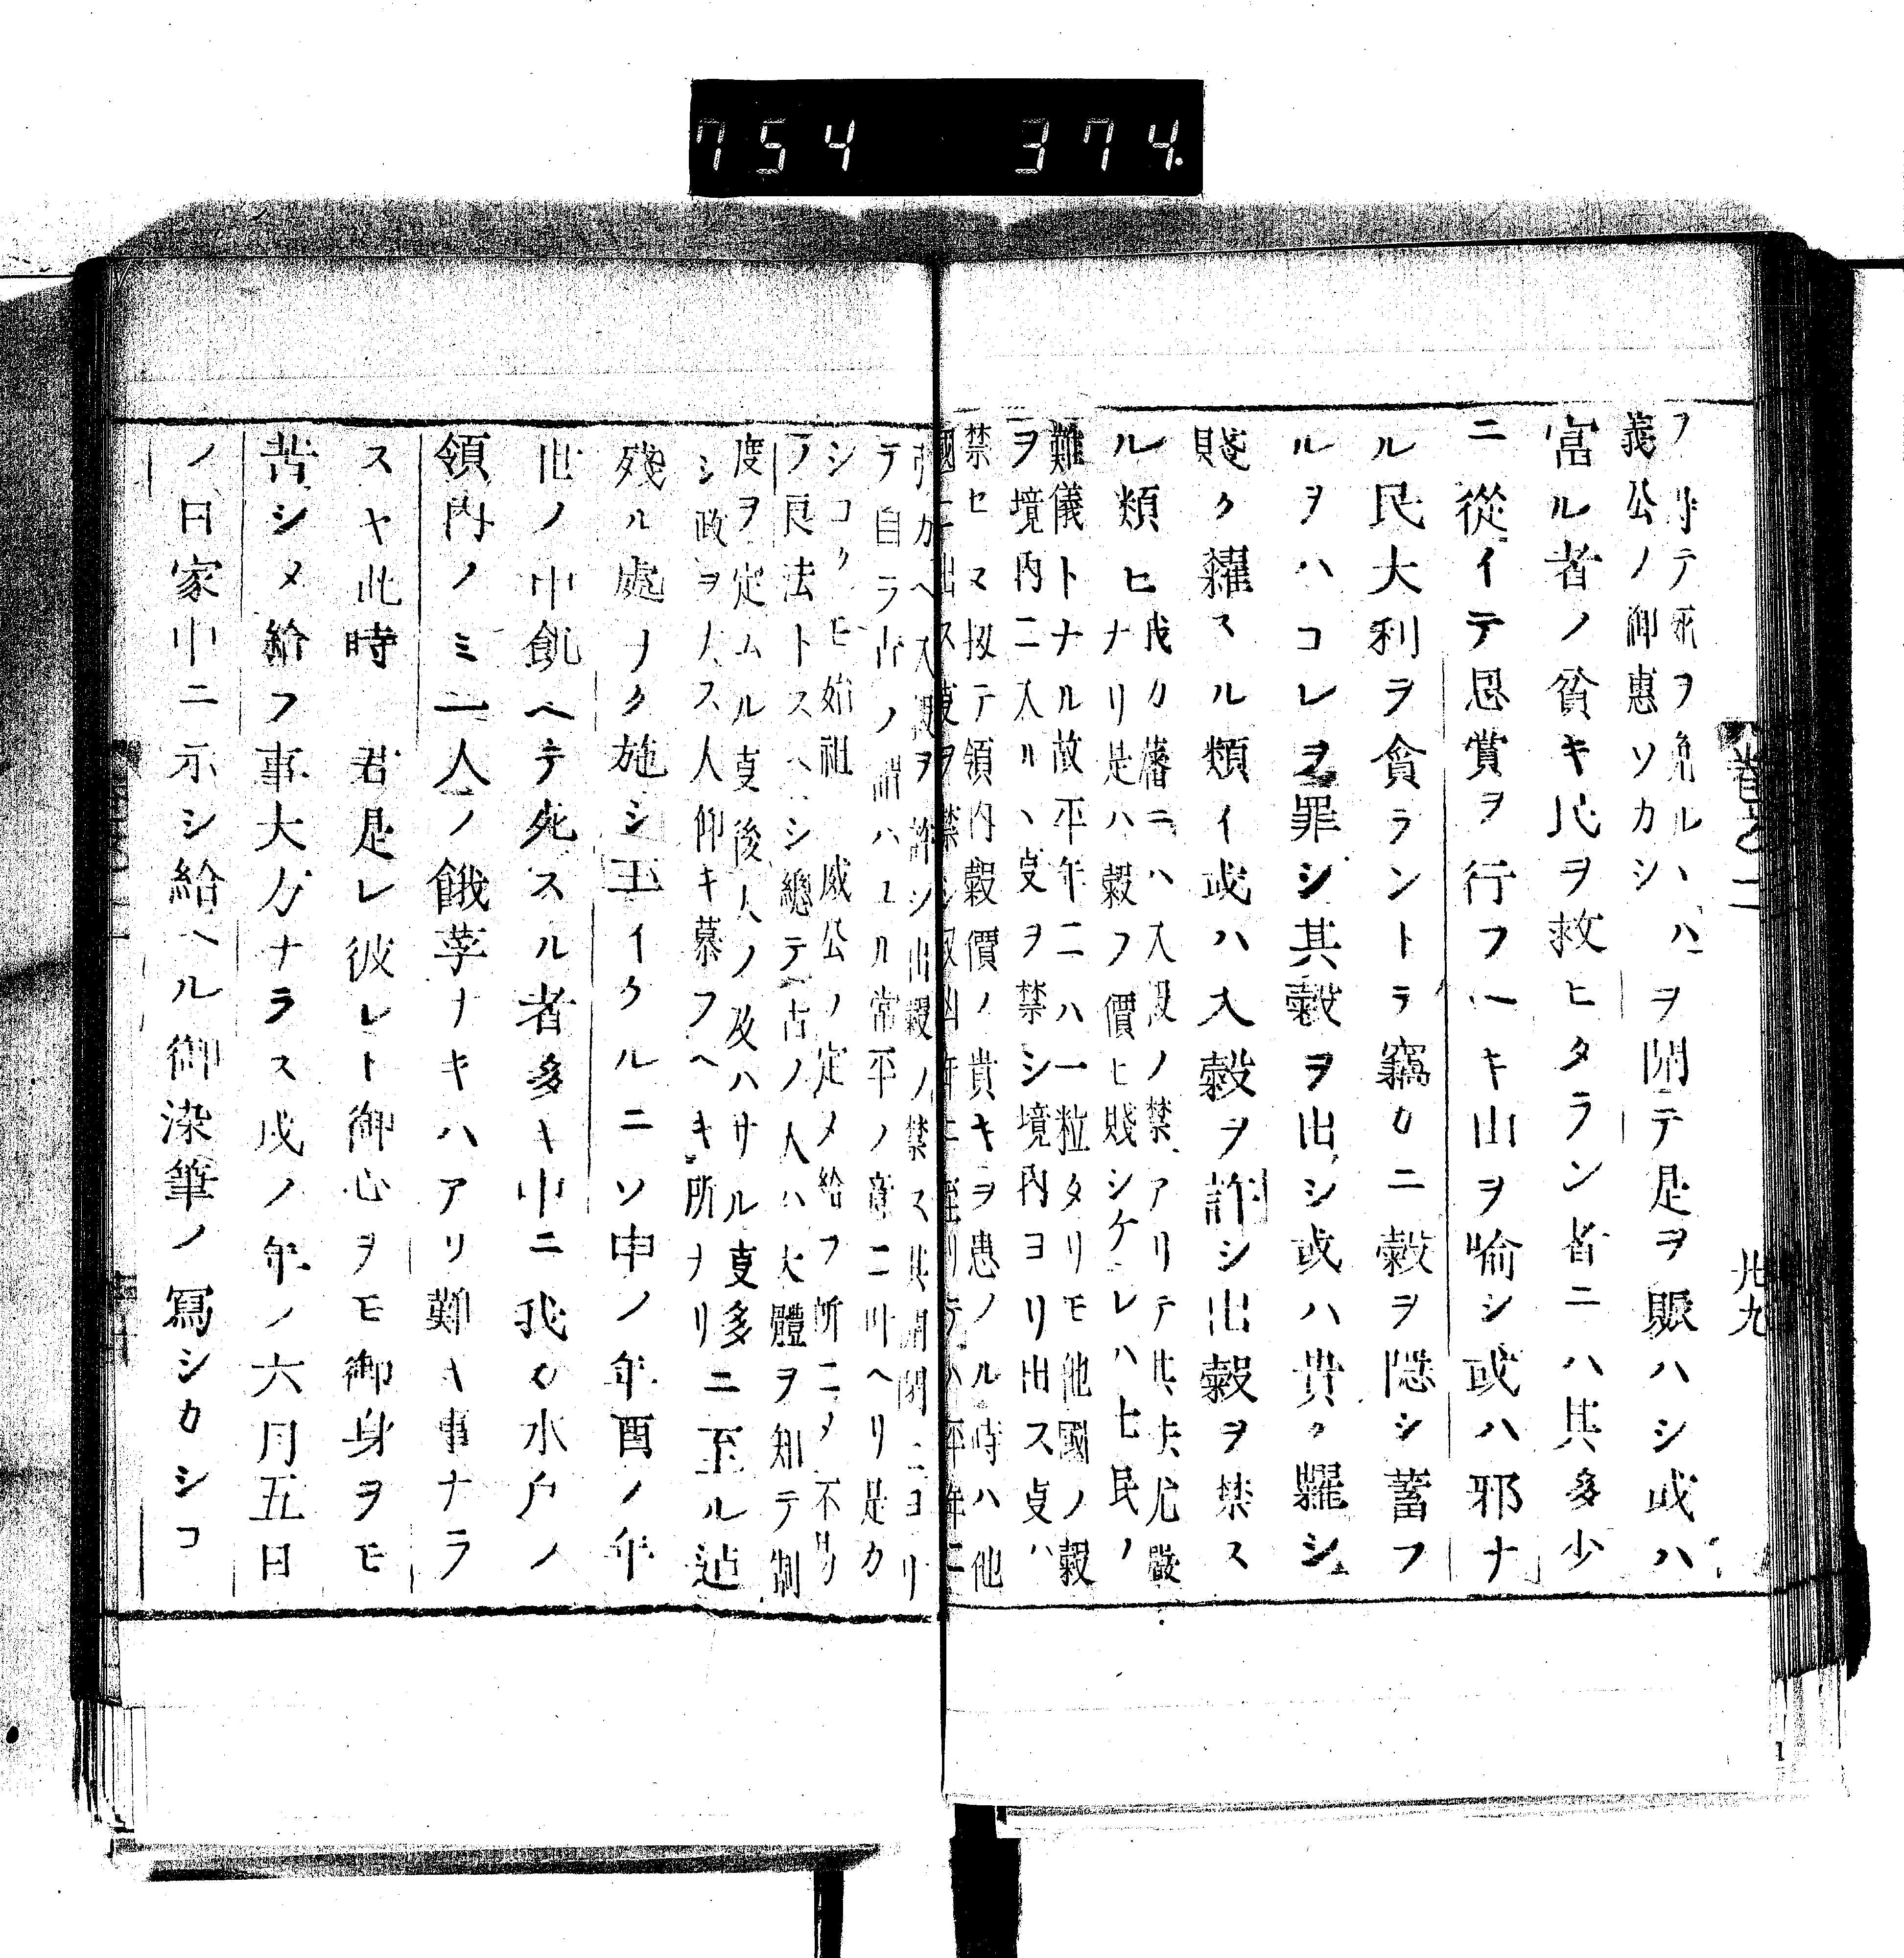 754 374
フ時テ死ヲ免ルヽハ
義公ノ御惠ソカシ
ヲ開テ是ヲ賑ハシ或ハ
富ル者ノ貧キ民ヲ救ヒタラン者ニハ其多少
ニ從イテ恩賞ヲ行フヘキ山ヲ喻シ或ハ邪ナ
ル民大利ヲ貪ラントテ竊カニ穀ヲ隱シ蓄フ
ルヲハコレヲ罪シ其穀ヲ出シ或ハ貴ク糶シ
賤ク糴スル類イ或ハ入穀ヲ許シ出穀ヲ禁ス
ル類ヒ
我カ藩ニハ入穀ノ禁アリテ其夫尤嚴
ナリ是ハ穀フ價ヒ賤シケレハ士民ノ
難儀トナル故平年ニハ一粒タリモ他國ノ穀
ヲ境内ニ入ルヽ㕝ヲ禁シ境内ヨリ出ス㕝ハ
禁セス扨テ領内穀價ノ貴キヲ患ノル時ハ他
國ニ出ス㕝ヲ禁シ
カヘ入穀ヲ許シ出穀ノ禁ス其開閉ニヨリ
テ自ラ古ノ謂ハユル常平ノ意ニ叶ヘリ是カ
シコクモ始祖 威公ノ定メ給フ所ニメ不易
ノ良法トスヘシ總テ古ノ人ハ大體ヲ知テ制
度ヲ定ムル㕝後人ノ及ハサル㕝多シ
政ヲノス人仰キ慕フヘキ所ナリ
ニ至ル迠
殘ル處ナク施シ玉イケルニソ申ノ年酉ノ年
世ノ中飢ヘテ死スル者多キ中ニ我カ水戶ノ
領内ノミ一人ノ餓莩ナキハアリ難キ事ナラ
スヤ此時 君是レ彼レト御心ヲモ御身ヲモ
苦シメ給フ事大方ナラス戌ノ年ノ六月五日
ノ日家中ニ示シ給ヘル御染筆ノ寫シカシコ
卷之二
卅九